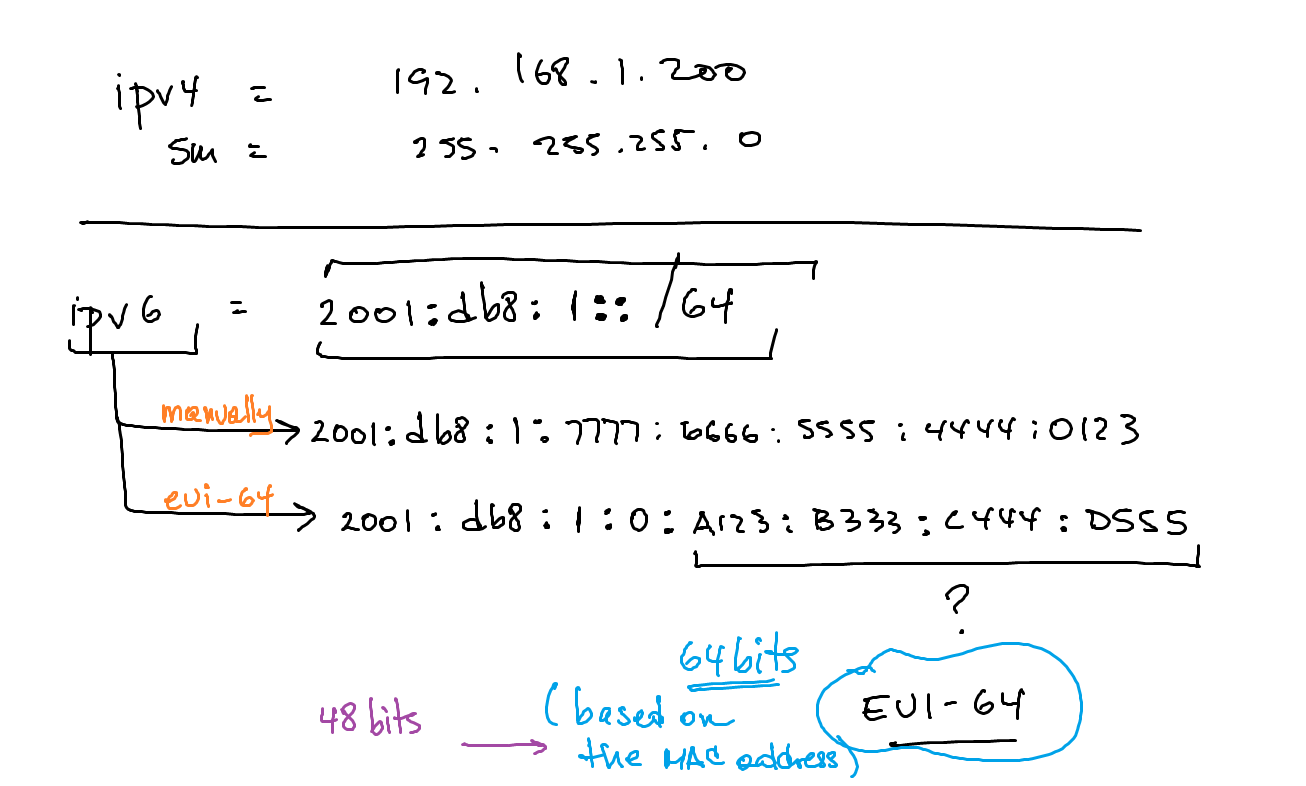 ipv4 = 192.168.1.200
sm = 255.255.255.0
ipv6 = 2001:db8:1::/64
manually 2001:db8:1:7777:6666:5555:4444:0123
eui-64 2001:db8:1:0:A123:B333:C444:D555
?
64 bits
48 bits (based on EUI-64
the MAC address)